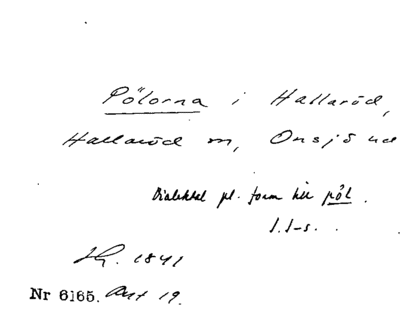 Pölorna i Hallaröd,
Hallaröd sn, Onsjö hd
Dialektal pl. form till pöl.
I.I-s.
Hg. 1841
Nr 6165. Akt 19.